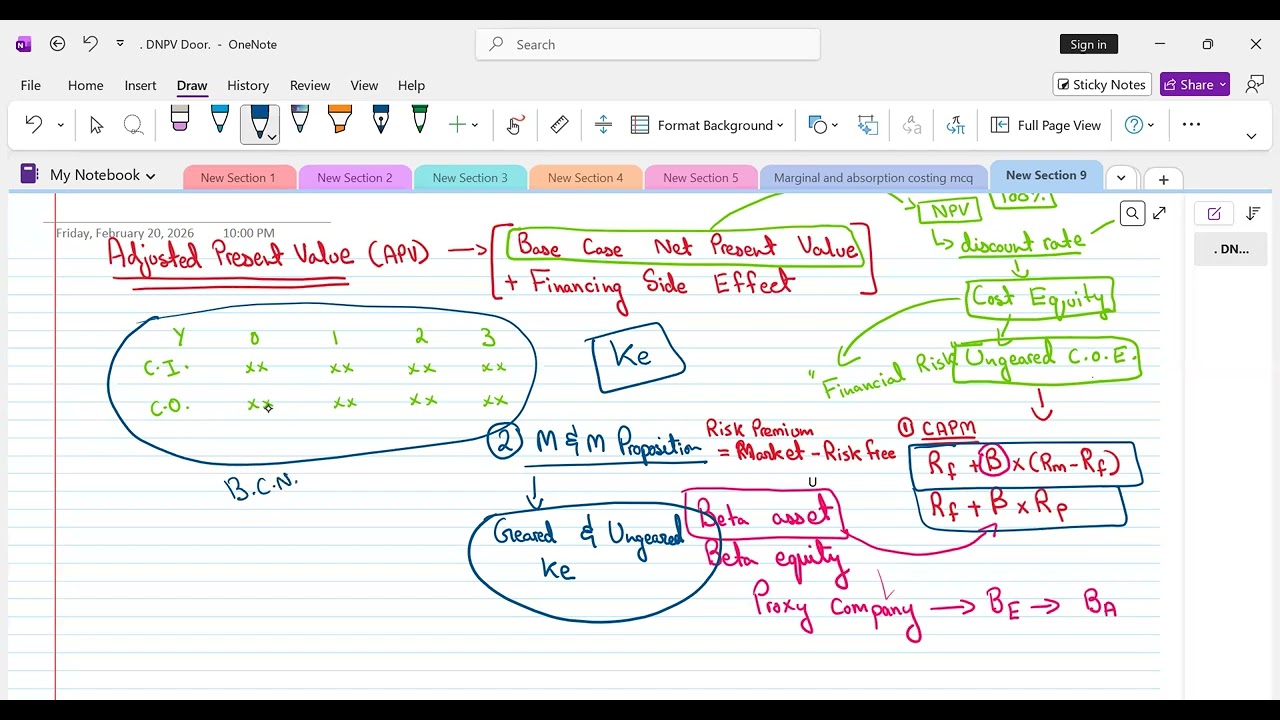 . DNPV Door. - OneNote
Search
Sign in
File Home Insert Draw History Review View Help
Sticky Notes
Share
Format Background
Full Page View
My Notebook
New Section 1
New Section 2
New Section 3
New Section 4
New Section 5
Marginal and absorption costing mcq
New Section 9
. DN...
Friday, February 20, 2026 10:00 PM
Adjusted Present Value (APV) → [Base Case Net Present Value
+ Financing Side Effect]
NPV 100%
↳ discount rate
Cost Equity
Ungeared C.O.E.
"Financial Risk"
Y 0 1 2 3
C.I. xx xx xx xx
C.O. xx xx xx xx
B.C.N.
Ke
② M & M Proposition
Geared & Ungeared
Ke
Risk Premium
= Market - Risk free
① CAPM
Rf + B x (Rm - Rf)
Rf + B x Rp
U
Beta asset
Beta equity
Proxy Company → BE → BA